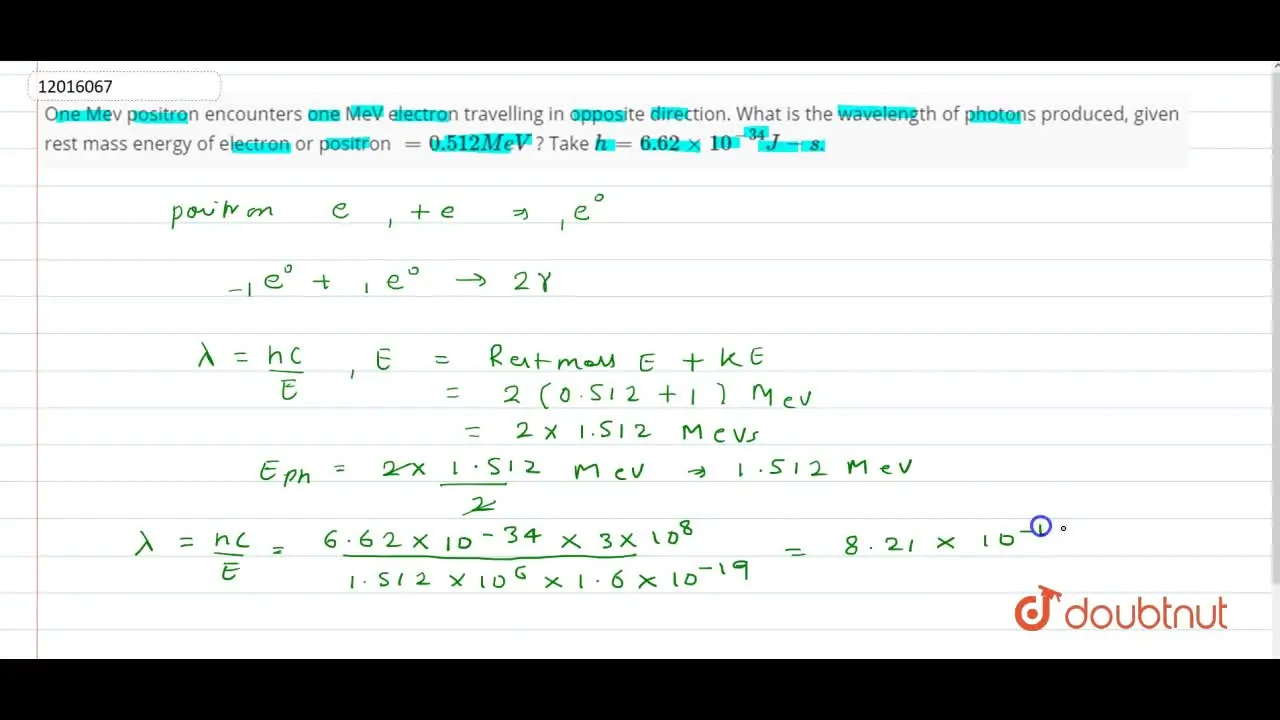 12016067
One Mev positron encounters one MeV electron travelling in opposite direction. What is the wavelength of photons produced, given
rest mass energy of electron or positron = 0.512MeV ? Take h = 6.62 × 10⁻³⁴ J − s.
positron e , +e ⇒ ₁e⁰
₋₁e⁰ + ₁e⁰ → 2γ
λ = hc/E , E = Restmass E + KE
= 2 (0.512 + 1) MeV
= 2 × 1.512 MeVs
Eph = 2 × 1.512 / 2 MeV → 1.512 MeV
λ = hc/E = 6.62 × 10⁻³⁴ × 3 × 10⁸ / 1.512 × 10⁶ × 1.6 × 10⁻¹⁹ = 8.21 × 10⁻¹
doubtnut